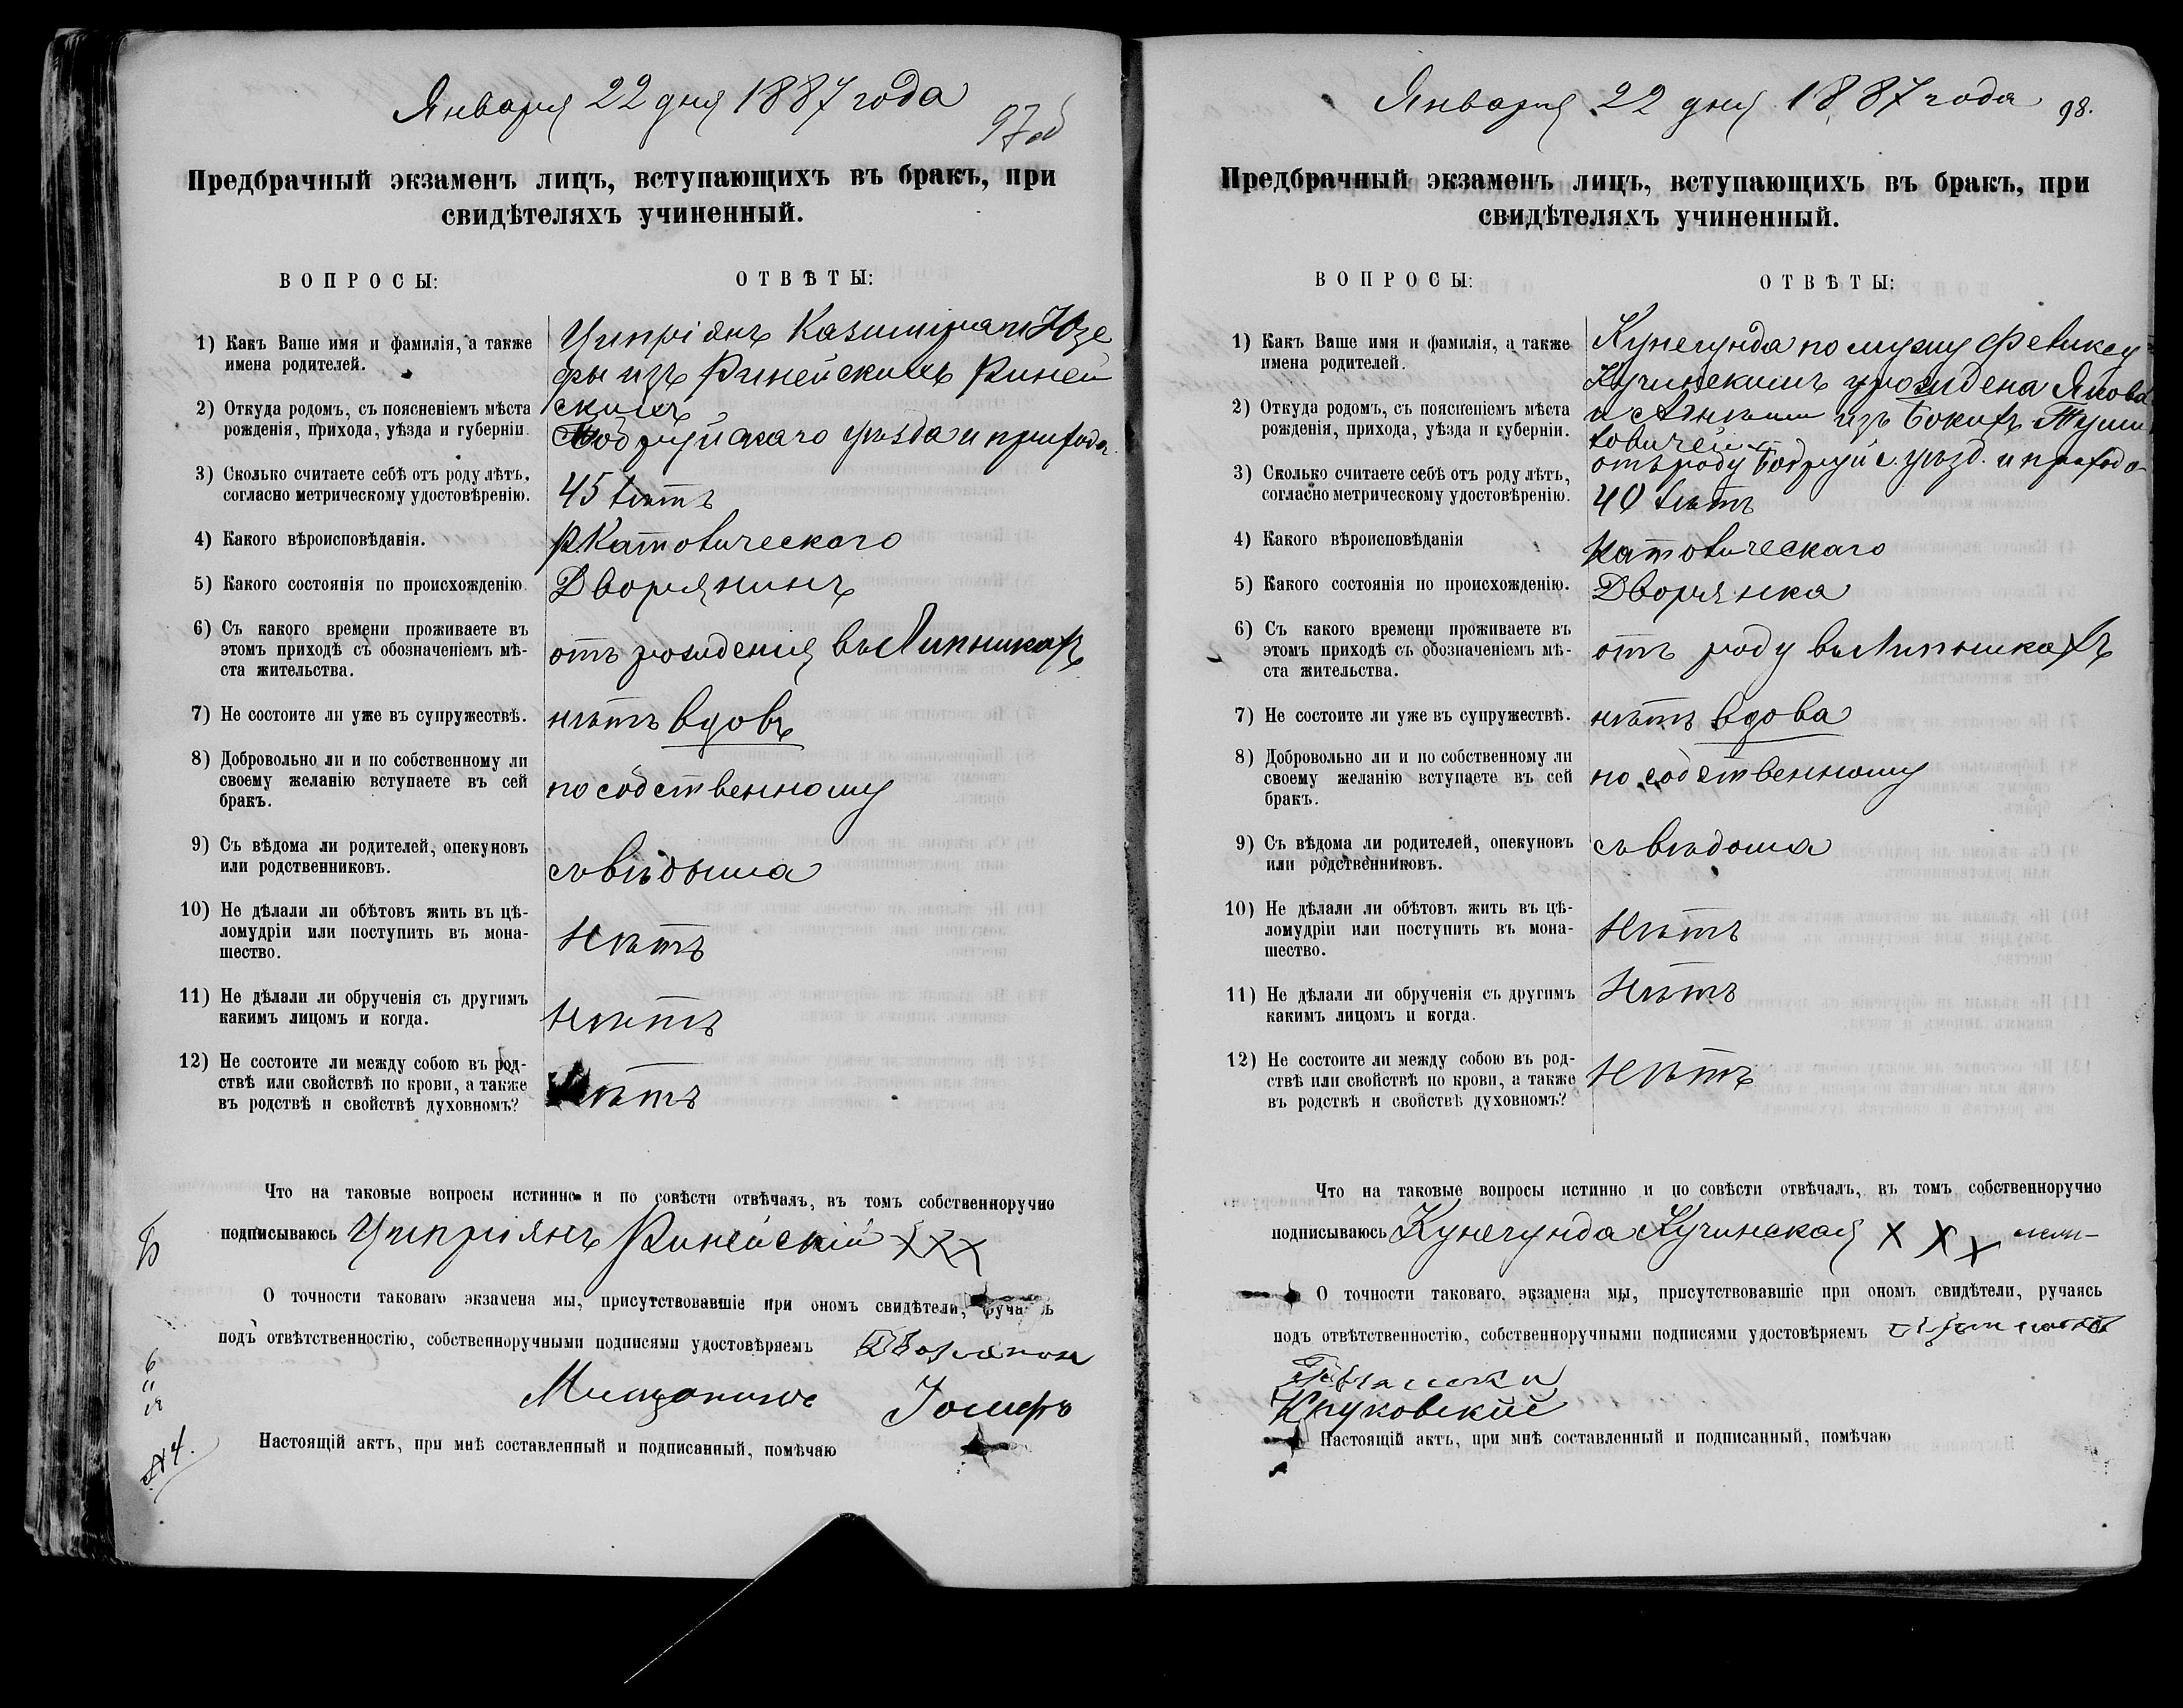 Января 22 дня 1887 года
97 об
Предбрачный экзаменъ лицъ, вступающихъ въ бракъ, при
свидѣтеляхъ учиненный.
ВОПРОСЫ:
ОТВѢТЫ:
1) Какъ Ваше имя и фамилія, а также
имена родителей.
Циприянъ Казимира и Юзе
фы изъ Ринейскихъ Риней
скихъ
2) Откуда родомъ, съ поясненіемъ мѣста
рожденія, прихода, уѣзда и губерніи.
Бобруйскаго уѣзда и прихода
3) Сколько считаете себѣ отъ роду лѣтъ,
согласно метрическому удостовѣренію.
45 лѣтъ
4) Какого вѣроисповѣданія.
Р Католическаго
5) Какого состоянія по происхожденію.
Дворянинъ
6) Съ какого времени проживаете въ
этомъ приходѣ съ обозначеніемъ мѣ-
ста жительства.
отъ рожденія въ Липникахъ
7) Не состоите ли уже въ супружествѣ.
нѣтъ вдовъ
8) Добровольно ли и по собственному ли
своему желанію вступаете въ сей
бракъ.
по собственному
9) Съ вѣдома ли родителей, опекуновъ
или родственниковъ.
съ вѣдома
10) Не дѣлали ли обѣтовъ жить въ цѣ-
ломудріи или поступить въ мона-
шество.
Нѣтъ
11) Не дѣлали ли обрученія съ другимъ
какимъ лицомъ и когда.
Нѣтъ
12) Не состоите ли между собою въ род-
ствѣ или свойствѣ по крови, а также
въ родствѣ и свойствѣ духовномъ?
Нѣтъ
Что на таковые вопросы истинно и по совѣсти отвѣчалъ, въ томъ собственноручно
подписываюсь Циприянъ Ринейскій XXX
О точности таковаго экзамена мы, присутствовавшіе при ономъ свидѣтели, ручаясь
подъ отвѣтственностію, собственноручными подписями удостовѣряемъ
Іосифъ
Настоящій актъ, при мнѣ составленный и подписанный, помѣчаю
Января 22 дня 1887 года
98.
Предбрачный экзаменъ лицъ, вступающихъ въ бракъ, при
свидѣтеляхъ учиненный.
ВОПРОСЫ:
ОТВѢТЫ:
1) Какъ Ваше имя и фамилія, а также
имена родителей.
Кунегунда по мужу Феликсу
Кучинскимъ урождена Якова
и Анны изъ
2) Откуда родомъ, съ поясненіемъ мѣста
рожденія, прихода, уѣзда и губерніи.
отъ роду Бобруйс. уѣзд. и прихода
3) Сколько считаете себѣ отъ роду лѣтъ,
согласно метрическому удостовѣренію.
40 лѣтъ
4) Какого вѣроисповѣданія
Католическаго
5) Какого состоянія по происхожденію.
Дворянка
6) Съ какого времени проживаете въ
этомъ приходѣ съ обозначеніемъ мѣ-
ста жительства.
отъ роду въ Липникахъ
7) Не состоите ли уже въ супружествѣ.
нѣтъ вдова
8) Добровольно ли и по собственному ли
своему желанію вступаете въ сей
бракъ.
по собственному
9) Съ вѣдома ли родителей, опекуновъ
или родственниковъ.
съ вѣдома
10) Не дѣлали ли обѣтовъ жить въ цѣ-
ломудріи или поступить въ мона-
шество.
Нѣтъ
11) Не дѣлали ли обрученія съ другимъ
какимъ лицомъ и когда.
Нѣтъ
12) Не состоите ли между собою въ род-
ствѣ или свойствѣ по крови, а также
въ родствѣ и свойствѣ духовномъ?
Нѣтъ
Что на таковые вопросы истинно и по совѣсти отвѣчалъ, въ томъ собственноручно
подписываюсь Кунегунда Кучинская X X X
О точности таковаго экзамена мы, присутствовавшіе при ономъ свидѣтели, ручаясь
подъ отвѣтственностію, собственноручными подписями удостовѣряемъ
Круковскій
Настоящій актъ, при мнѣ составленный и подписанный, помѣчаю